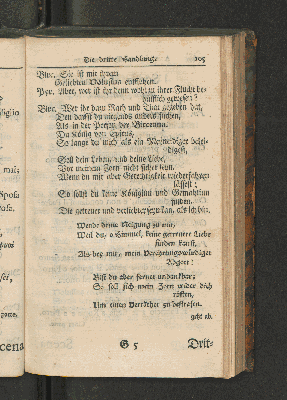 Die dritte Handlung. 105
Vire. Sie ist mit ihrem
Geliebten Volusius entflohen.
Pyr. Aber, wer ist ihr denn wohl zu ihrer Flucht be-
hülflich gewesen?
Vire. Wer ihr dann Rath und That gegeben hat,
Den darfst du nirgends anders suchen,
Als in der Person der Bircenna.
Du König von Epirus,
So lange du mich als ein Meineidiger belei-
digest,
Soll dein Leben, und deine Liebe,
Vor meinem Zorn nicht sicher seyn.
Wenn du mir aber Gerechtigkeit wiederfahren
lässest;
So sollst du keine Königinn und Gemahlinn
finden,
Die getreuer und verliebter seyn kan, als ich bin.
Wende deine Neigung zu mir,
Weil du, o Himmel, keine getreuere Liebe
finden kanst,
Als bey mir, mein
Abgott!
Bist du aber ferner undankbar;
So soll sich mein Zorn wider dich
rüsten,
Um einen Verräther zu bestrafen.
geht ab.
G 5 Drit-
mai;
Sposa
Posa.
sei,
parte.
cena